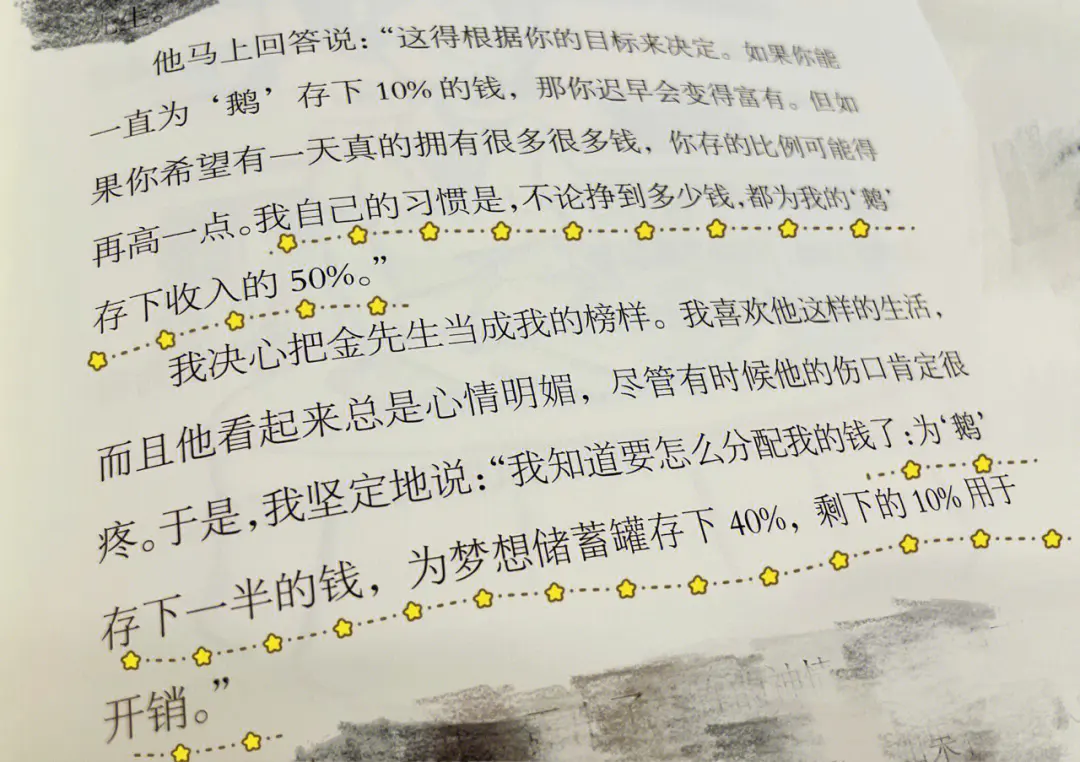 他马上回答说：“这得根据你的目标来决定。如果你能
一直为‘鹅’存下 10% 的钱，那你迟早会变得富有。但如
果你希望有一天真的拥有很多很多钱，你存的比例可能得
再高一点。我自己的习惯是，不论挣到多少钱，都为我的‘鹅’
存下收入的 50%。”
我决心把金先生当成我的榜样。我喜欢他这样的生活，
而且他看起来总是心情明媚，尽管有时候他的伤口肯定很
疼。于是，我坚定地说：“我知道要怎么分配我的钱了：为‘鹅’
存下一半的钱，为梦想储蓄罐存下 40%，剩下的 10% 用于
开销。”